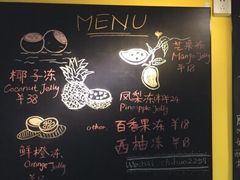 MENU
椰子冻
Coconut Jelly
¥38
芒果冻
Mango Jelly
¥18
凤梨冻 ¥24
Pineapple Jelly
鲜橙冻
Orange Jelly
¥18
other
百香果冻 ¥18
西柚冻 ¥18